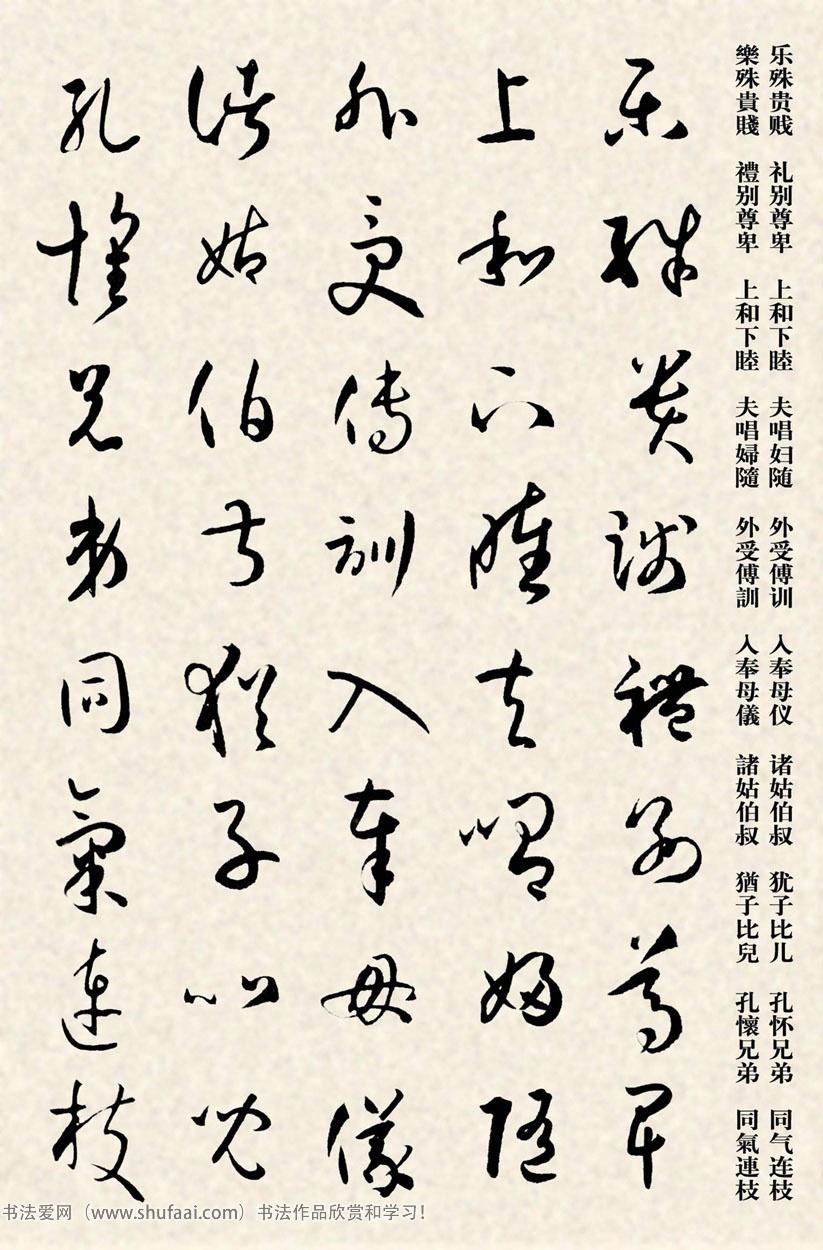 乐殊贵贱 礼别尊卑 上和下睦 夫唱妇随 外受傅训 入奉母仪 诸姑伯叔 犹子比儿 孔怀兄弟 同气连枝
樂殊貴賤 禮别尊卑 上和下睦 夫唱婦隨 外受傅訓 入奉母儀 諸姑伯叔 猶子比兒 孔懷兄弟 同氣連枝
樂殊貴賤禮别尊卑
上和下睦夫唱婦隨
外受傅訓入奉母儀
諸姑伯叔猶子比兒
孔懷兄弟同氣連枝
书法爱网（www.shufaai.com）书法作品欣赏和学习！